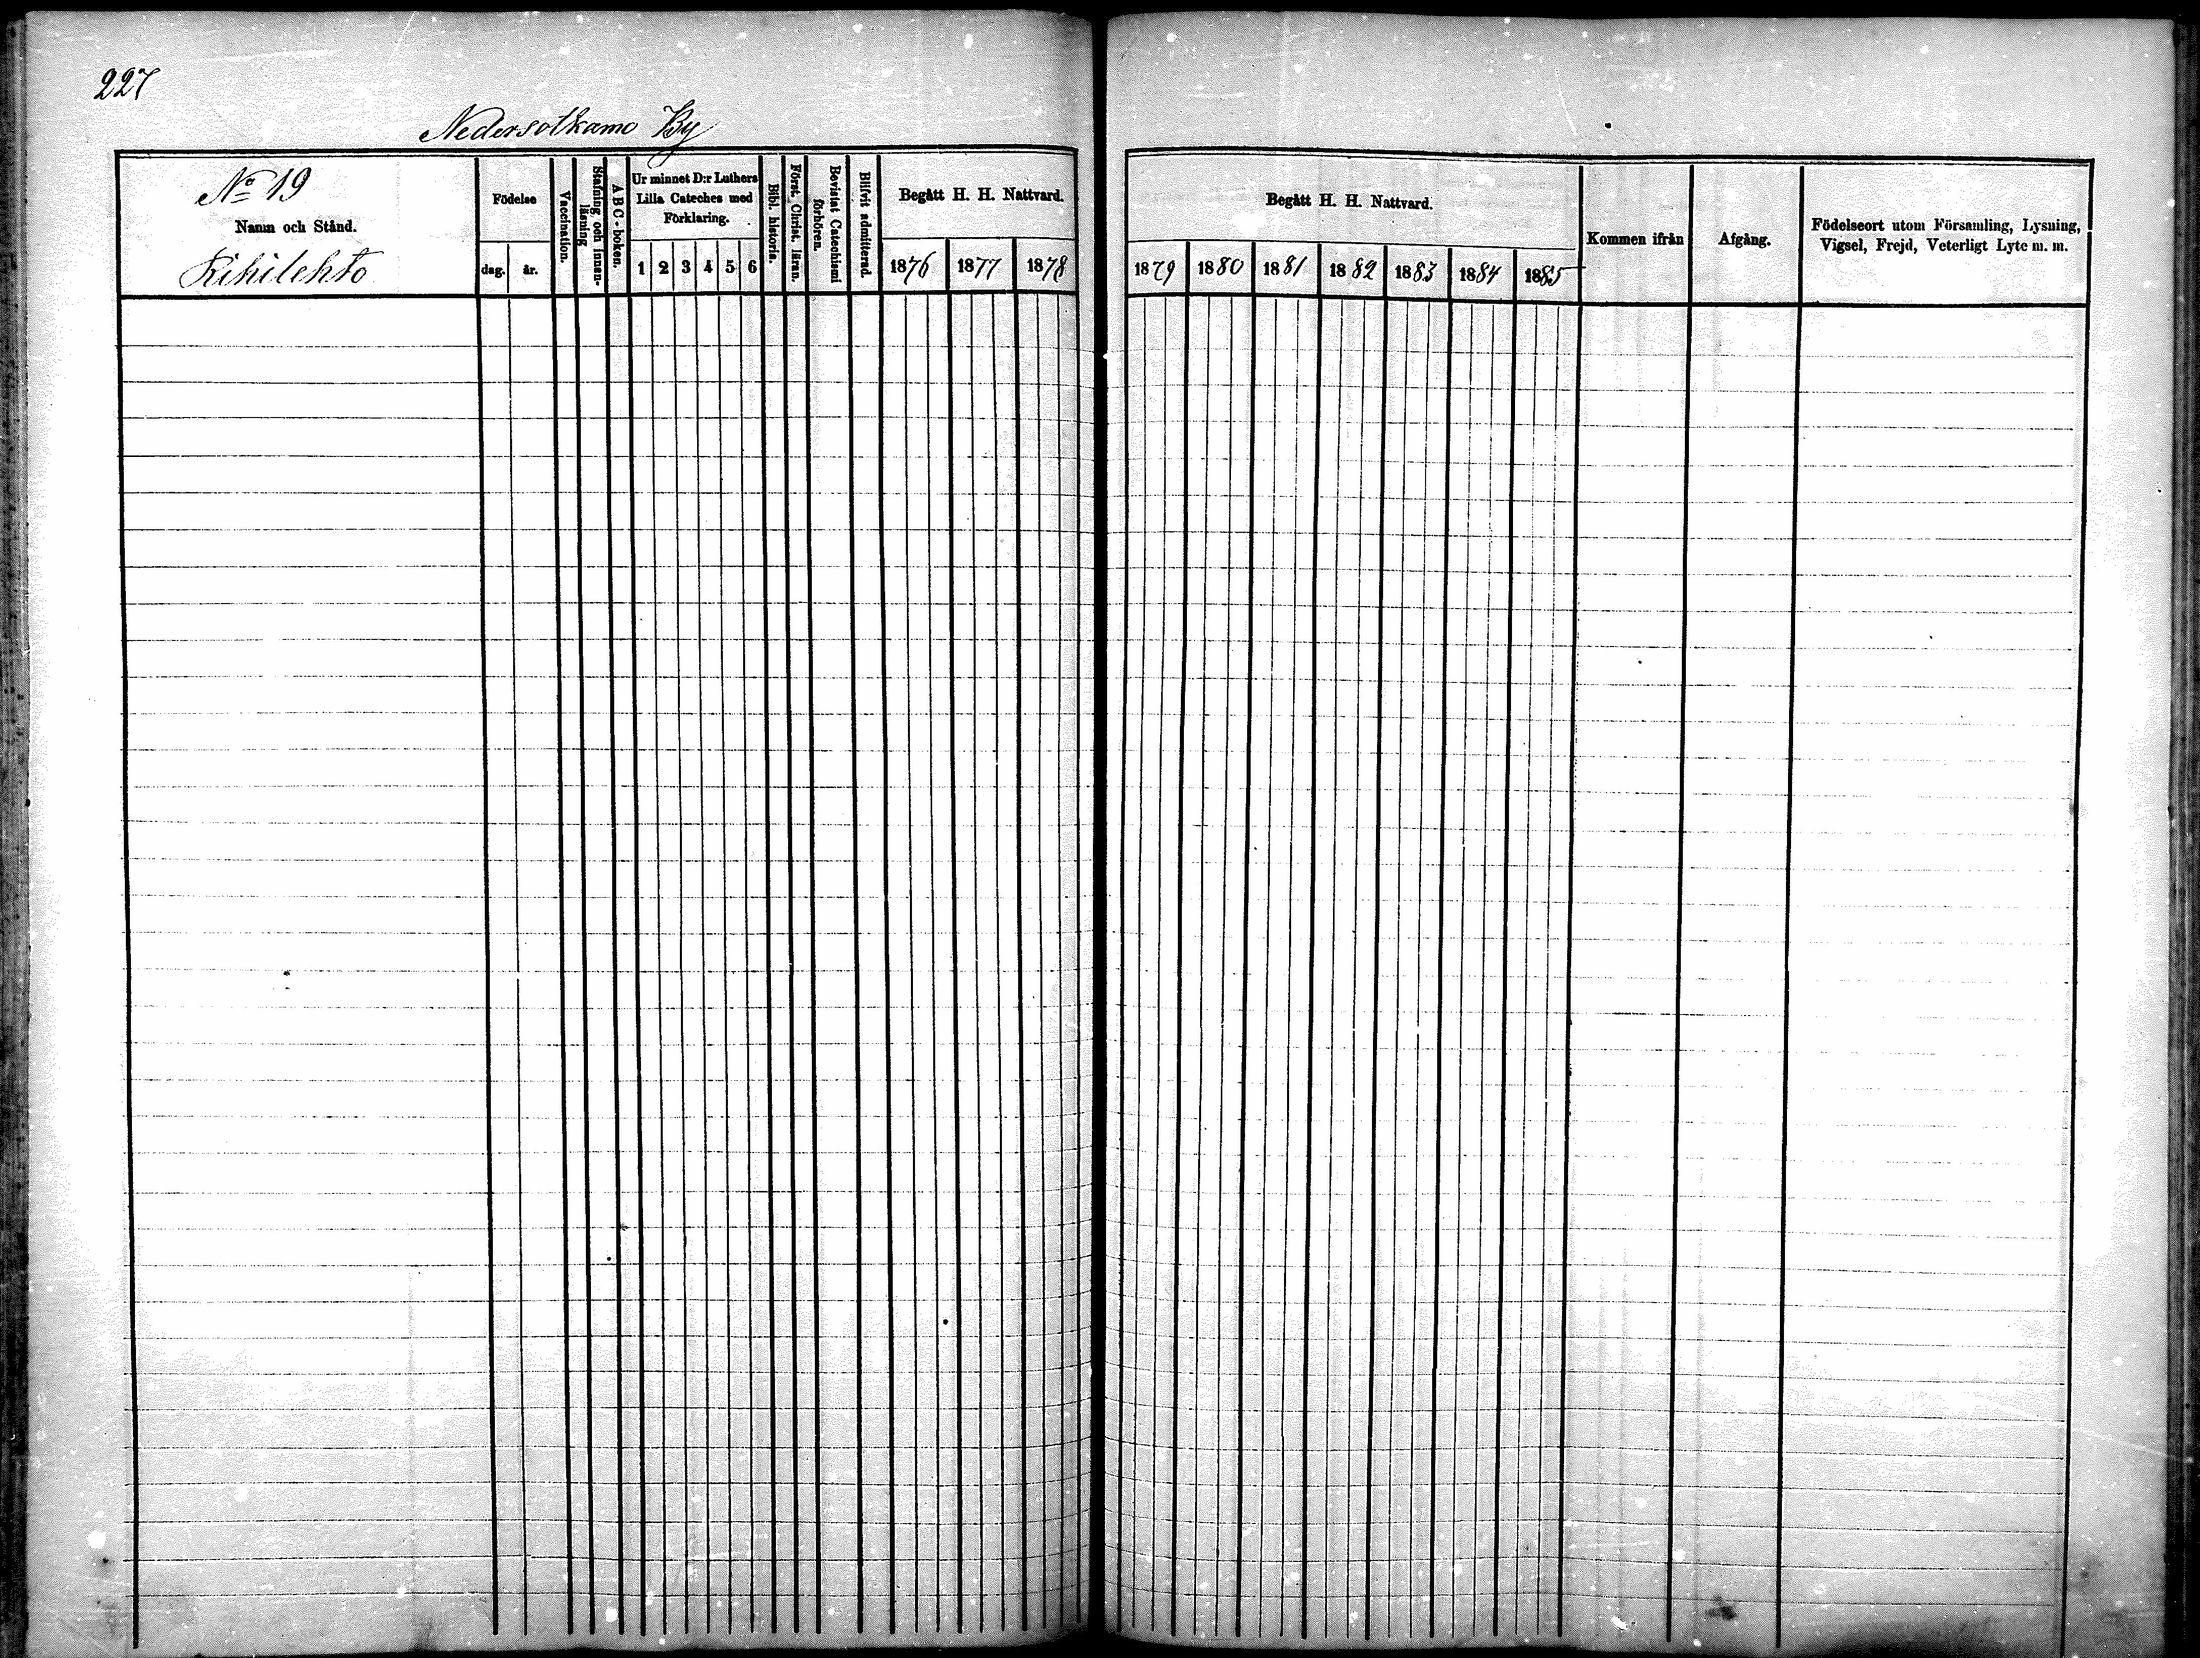 227
Nedersotkamo By
No 19
Namn och Stånd.
Kihilehto
Födelse
dag. år.
Vaccination.
Stafning och innan-
läsning
ABC-boken.
Ur minnet D:r Luthers
Lilla Cateches med
Förklaring.
1 2 3 4 5 6
Bibl. historia.
Först. Christ. läran.
Bevistat Catechismi
förhören.
Blifvit admitterad.
Begått H. H. Nattvard.
1876 1877 1878
Begått H. H. Nattvard.
1879 1880 1881 1882 1883 1884 1885
Kommen ifrån
Afgång.
Födelseort utom Församling, Lysning,
Vigsel, Frejd, Veterligt Lyte m. m.